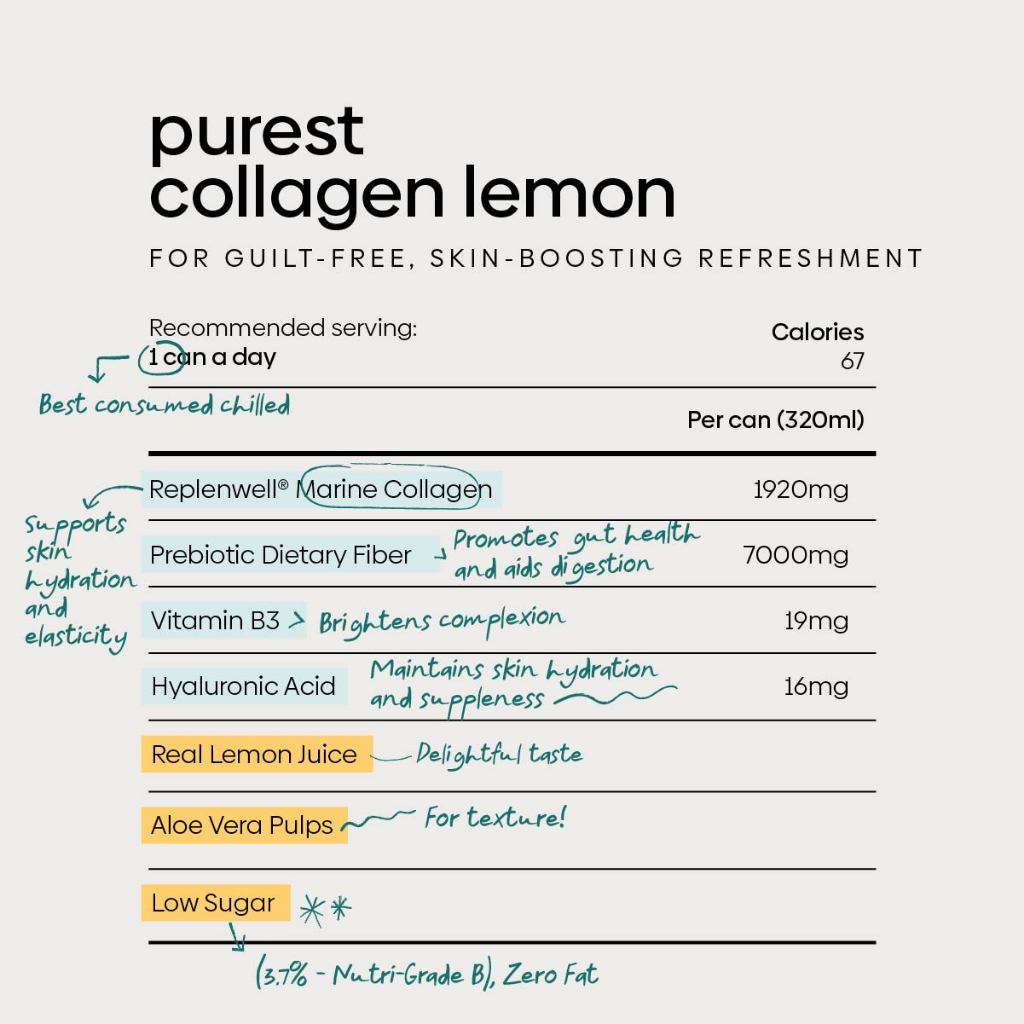 purest
collagen lemon
FOR GUILT-FREE, SKIN-BOOSTING REFRESHMENT
Recommended serving:
1 can a day
Calories
67
Best consumed chilled
Per can (320ml)
Replenwell® Marine Collagen 1920mg
Supports
skin
hydration
and
elasticity
Prebiotic Dietary Fiber 7000mg
Promotes gut health
and aids digestion
Vitamin B3 Brightens complexion 19mg
Hyaluronic Acid 16mg
Maintains skin hydration
and suppleness
Real Lemon Juice Delightful taste
Aloe Vera Pulps For texture!
Low Sugar **
(3.7% - Nutri-Grade B), Zero Fat